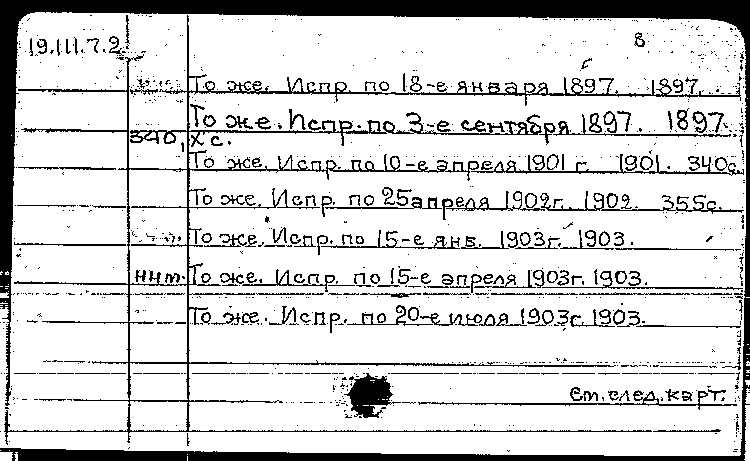 19.III.7.2
8
То же. Испр. по 18-е января 1897. 1897.
То же. Испр. по 3-е сентября 1897. 1897.
340, X с.
То же. Испр. по 10-е апреля 1901 г. 1901. 340с.
То же. Испр. по 25 апреля 1902г. 1902. 355с.
То же. Испр. по 15-е янв. 1903г. 1903.
ннт. То же. Испр. по 15-е апреля 1903г. 1903.
То же. Испр. по 20-е июля 1903г. 1903.
См. след. карт.